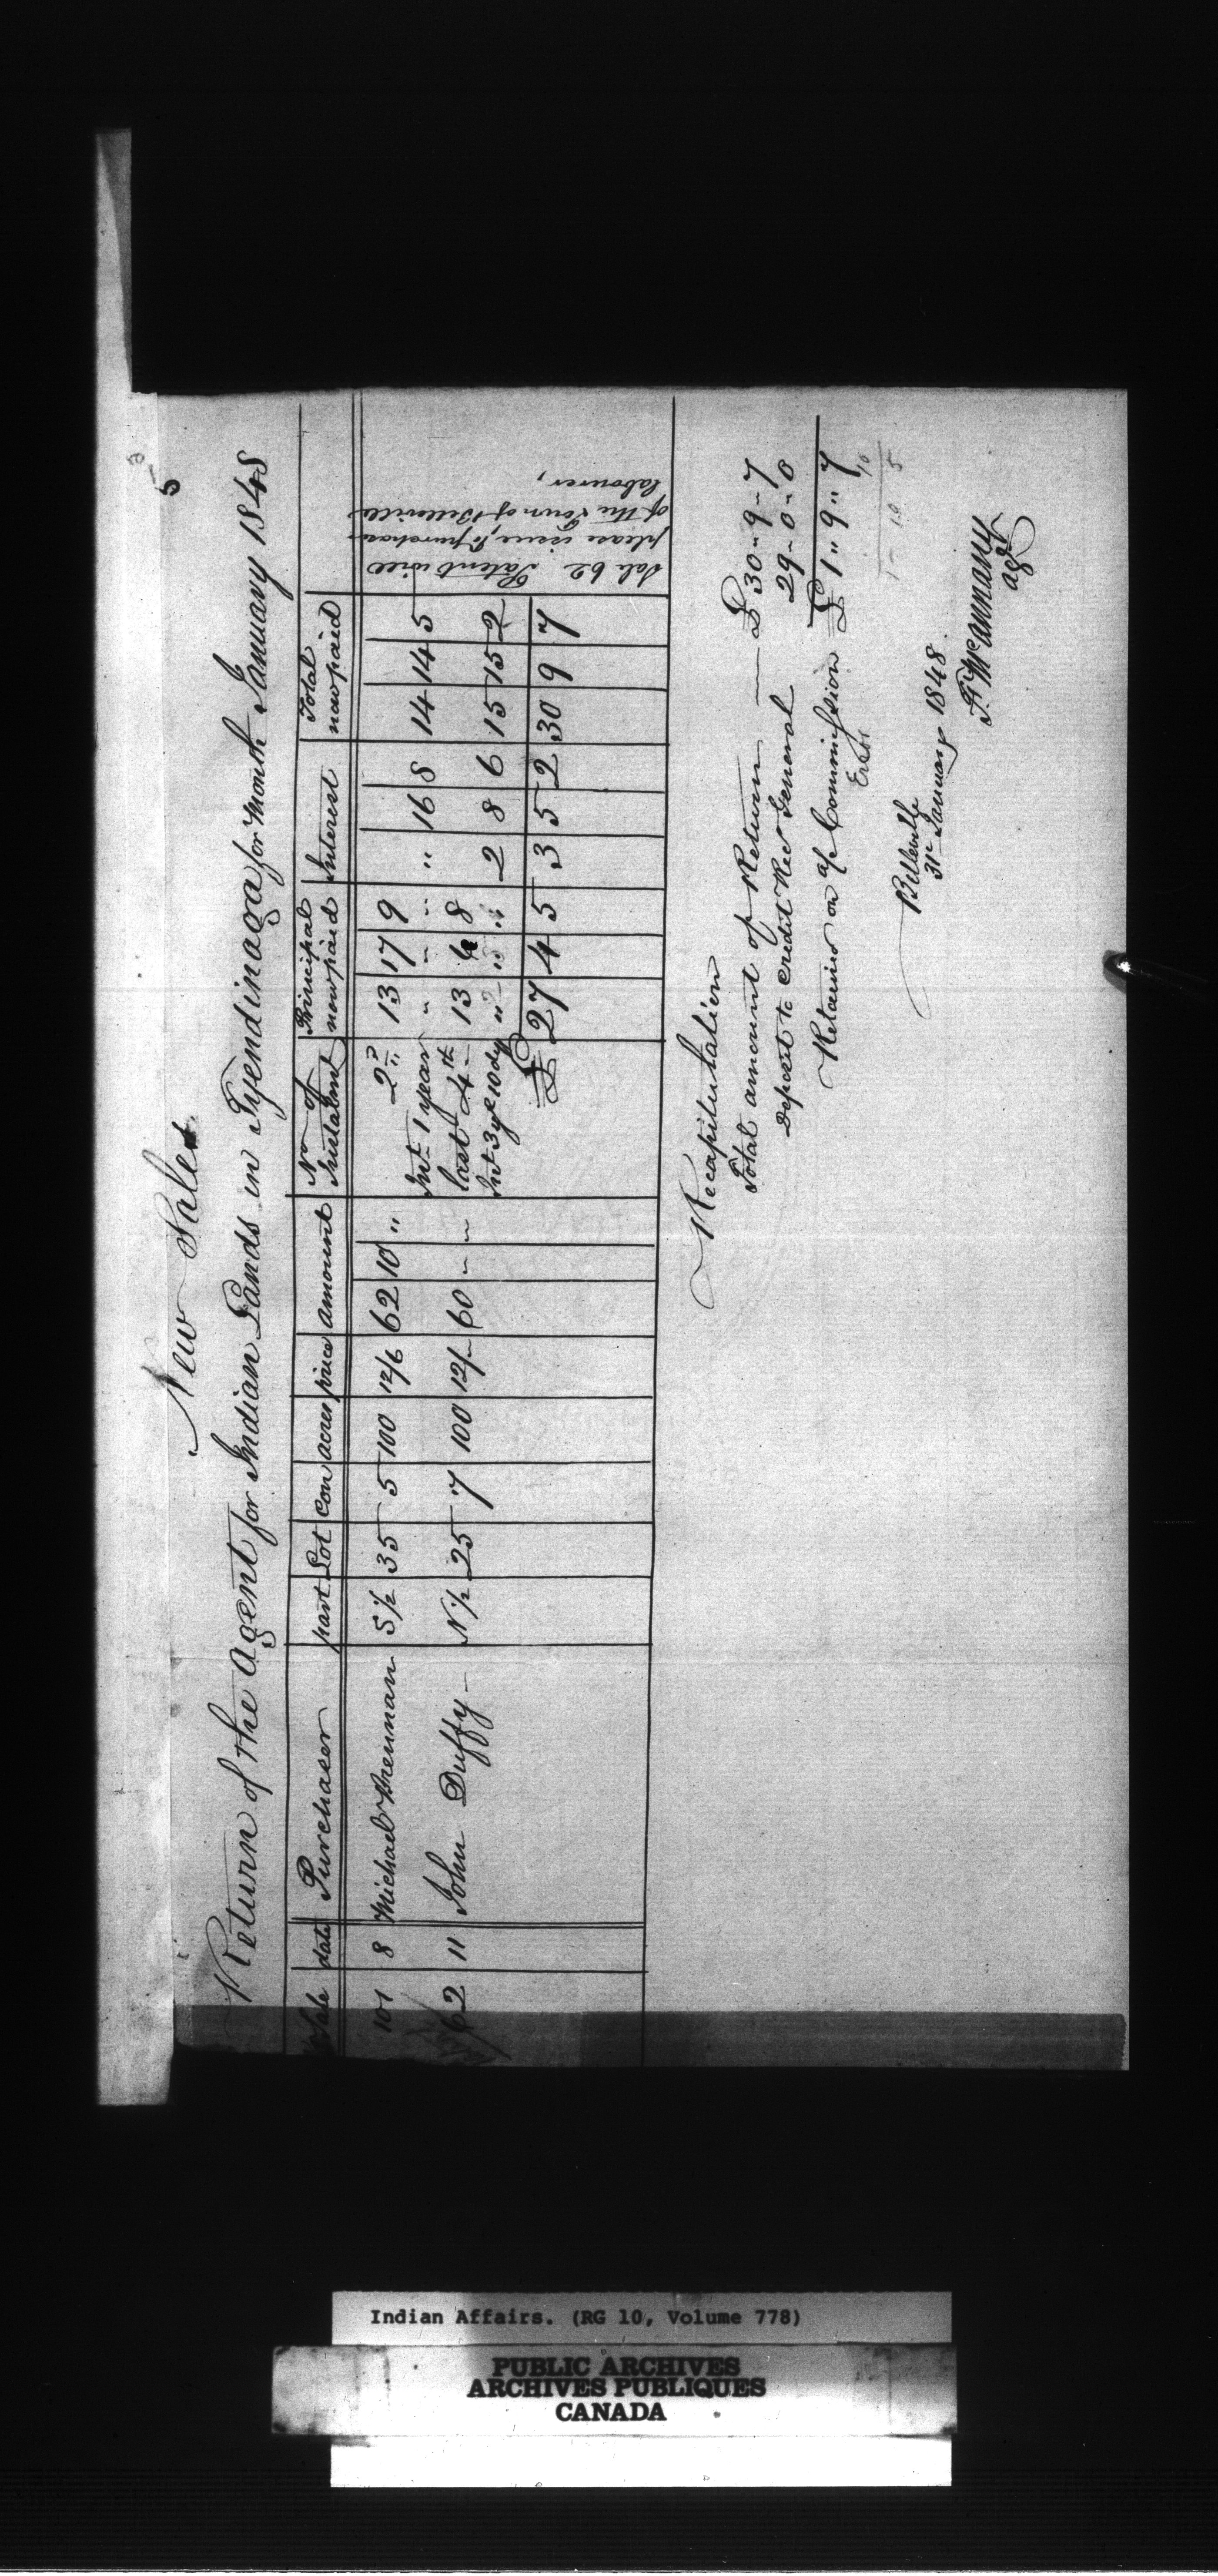 5
New Sales
Return of the Agent for Indian Lands in Tyendinaga for Month January 1848
Sale date Purchaser part Lot Con acres price amount No of Instalment Principal now paid Interest Total now paid
101 8 Michael Brennan S ½ 35 5 100 12/6 62 10 " 2nd 13 17 9
Int 1 year " " " " 16 8 14 14 5
62 11 John Duffy - N ½ 25 7 100 12/- 60 - - last 4th - 13 6 8
Int 3 yr 10 dy " " " 2 8 6 15 15 2
£ 27 4 5 3 5 2 30 9 7
Sale 62. Patent will
please issue, to purchaser
of the Town of Belleville
labourer,
Recapitulation
Total amount of Return — £ 30 - 9 - 7
Deposit to credit Rec General 29 - 0 - 0
Retained on a/c Commission £ 1 " 9 " 7
10
1 - 10 5
Belleville
31st January 1848.
T. McAnnany
agt
Indian Affairs. (RG 10, Volume 778)
PUBLIC ARCHIVES
ARCHIVES PUBLIQUES
CANADA